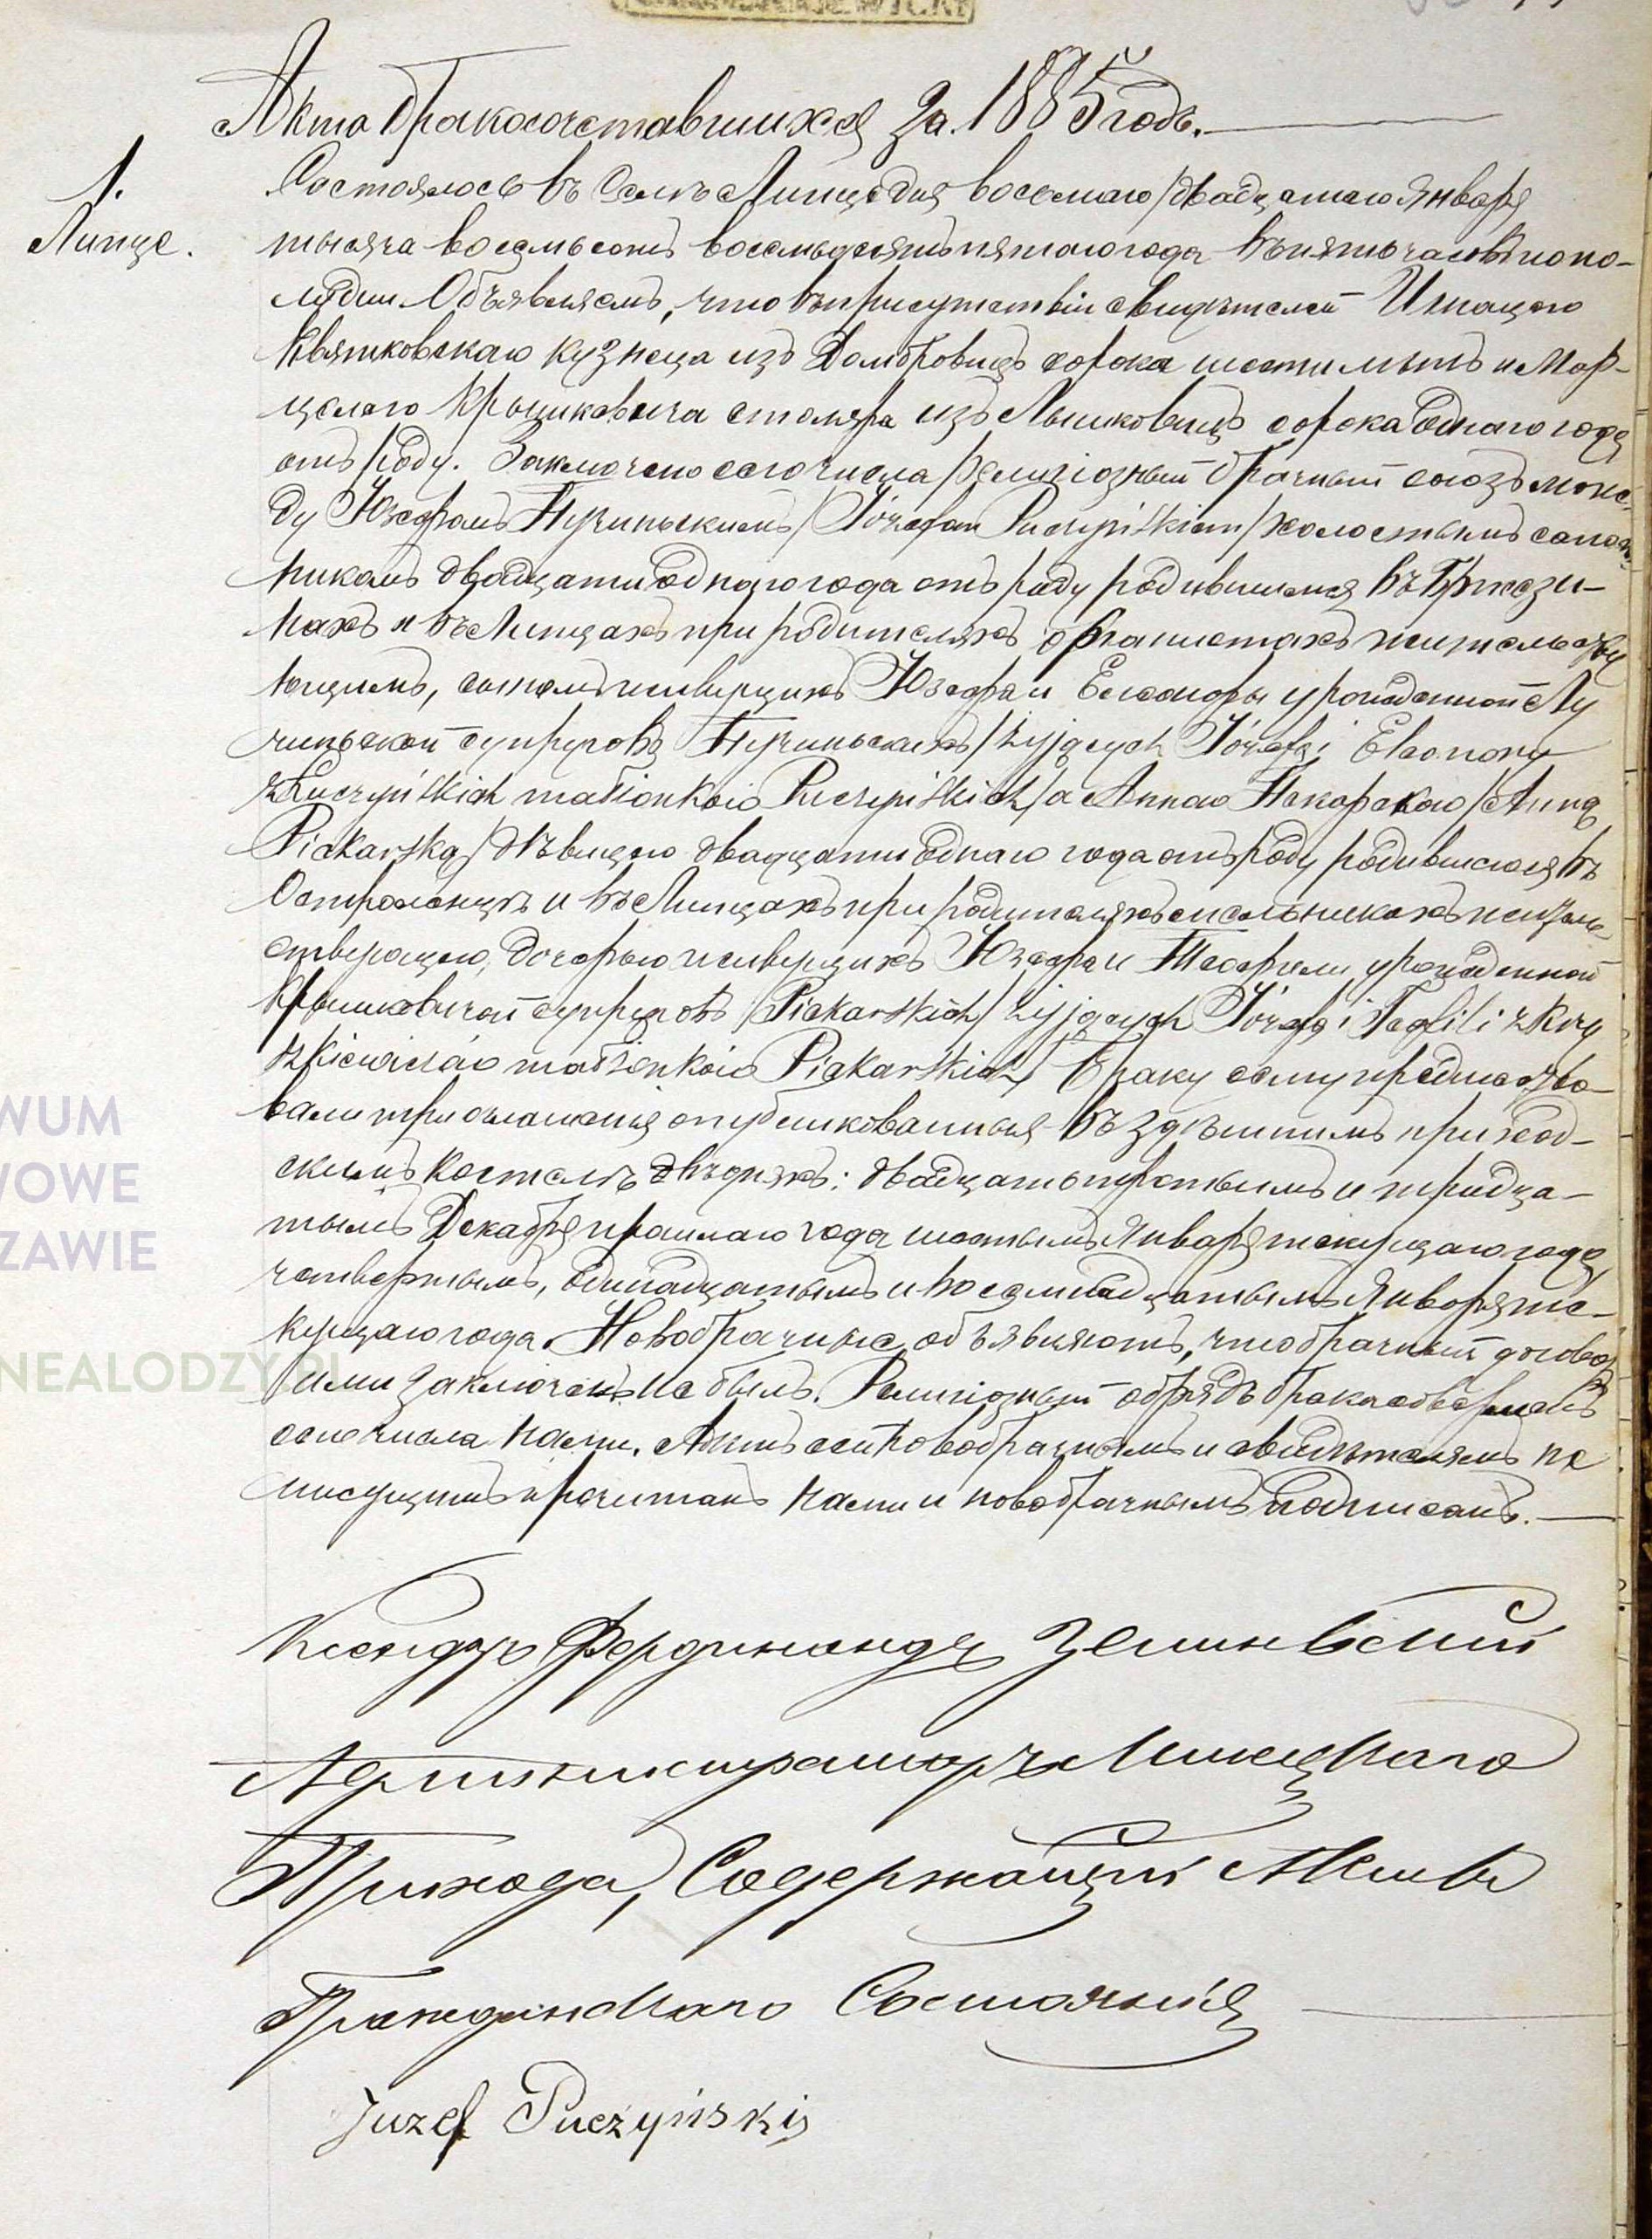 Акта бракосочетавшихся за 1885 годъ.
1.
Липце.
Состоялось въ Селѣ Липце дня восьмаго /двадцатаго Января
тысяча восемьсотъ восемьдесятъ пятаго года въ пять часовъ попо-
лудни. Объявляемъ, что въ присутствіи свидѣтелей Игнацаго
Квятковскаго кузнеца изъ Домбровицъ сорока шести лѣтъ и Мар-
целаго Крышкевича столяра изъ Лышковицъ сорока одного года
отъ роду. Заключено сего числа религіозный брачный союзъ меж-
ду Юзефомъ Пучиньскимъ /Józefem Puczyńskiem/ холостымъ сапож-
никомъ двадцати одного года отъ роду родившимся въ Бржези-
нахъ и въ Липцахъ при родителяхъ органистахъ жительству-
ющимъ, сыномъ живущихъ Юзефа и Елеоноры урожденной Лу
чиньской супруговъ Пучиньскихъ /żyjących Józefa i Eleonory
z Łuczyńskich małżonków Puczyńskich/ а Анною Пекарскою /Anną
Piekarską/ дѣвицею двадцати одного года отъ роду родившеюся въ
и въ Липцахъ при родителяхъ мельникахъ жители
ствующею, дочерью живущихъ Юзефа и Теофили урожденной
Крышкевичой супруговъ /Piekarskich/ żyjących Józefa i Teofili z Kry
szkiewiczów małżonków Piekarskich/ Браку сему предшество-
вали три оглашенія опубликованныя въ здѣшнемъ приход-
скимъ костелѣ дняхъ: двадцать третьимъ и тридца-
тымъ Декабря прошлаго года шестымъ Января текущаго года,
четвертымъ, одинадцатымъ и восемнадцатымъ Января те-
кущаго года. Новобрачные объявляютъ, что брачный договоръ
ими заключенъ не былъ. Религіозный обрядъ брака совершенъ
сего числа нами. Актъ сей новобрачнымъ и свидѣтелямъ не
писущимъ прочитанъ нами и новобрачнымъ подписанъ.
Ксендзъ Фердинандъ
Администраторъ Липецкаго
Прихода, Содержащій Акты
Гражданскаго Состоянія
Juzef Puczyński